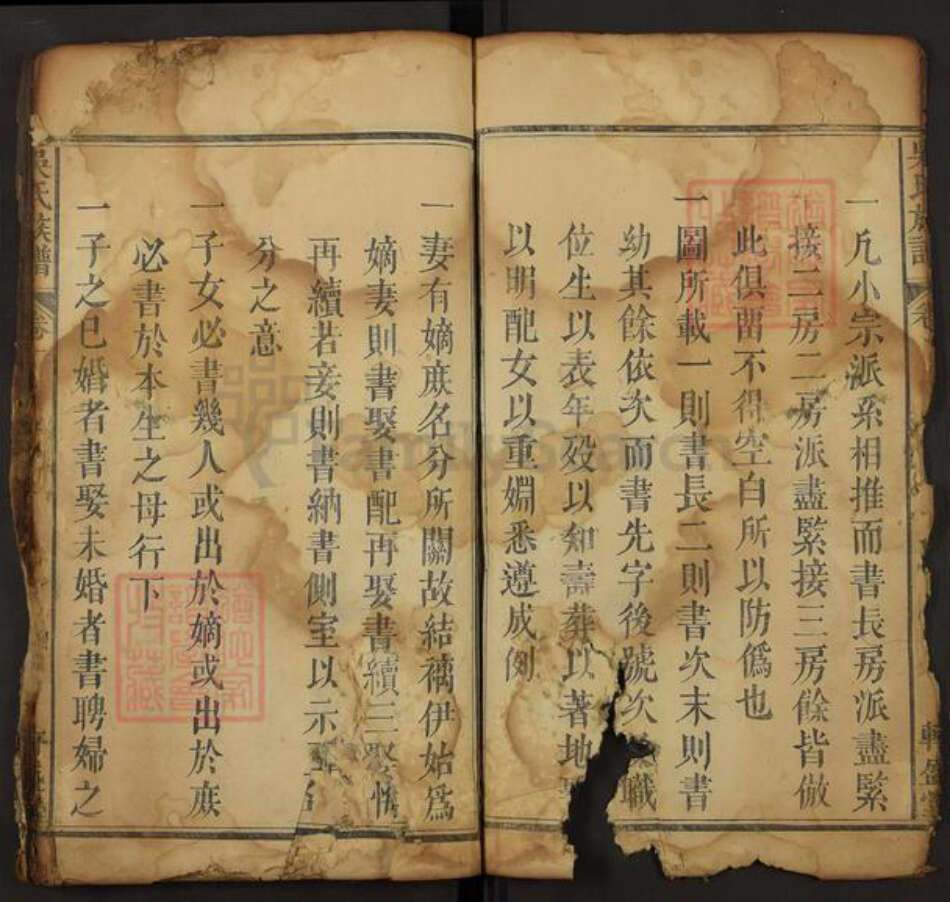 一凡小宗派系相推而書長房派盡緊
接二房二房派盡緊接三房餘皆倣
此俱留不得空白所以防僞也
一圖所載一則書長二則書次末則書
幼其餘依次而書先字後號次職
位生以表年殁以知壽葬以著地
以明配女以重婣悉遵成例
一妻有嫡庻名分所關故結褵伊始爲
嫡妻則書娶書配再娶書續三娶
再續若妾則書納書側室以示
分之意
一子女必書幾人或出於嫡或出於庻
必書於本生之母行下
一子之已婚者書娶未婚者書聘婦之
吳氏族譜